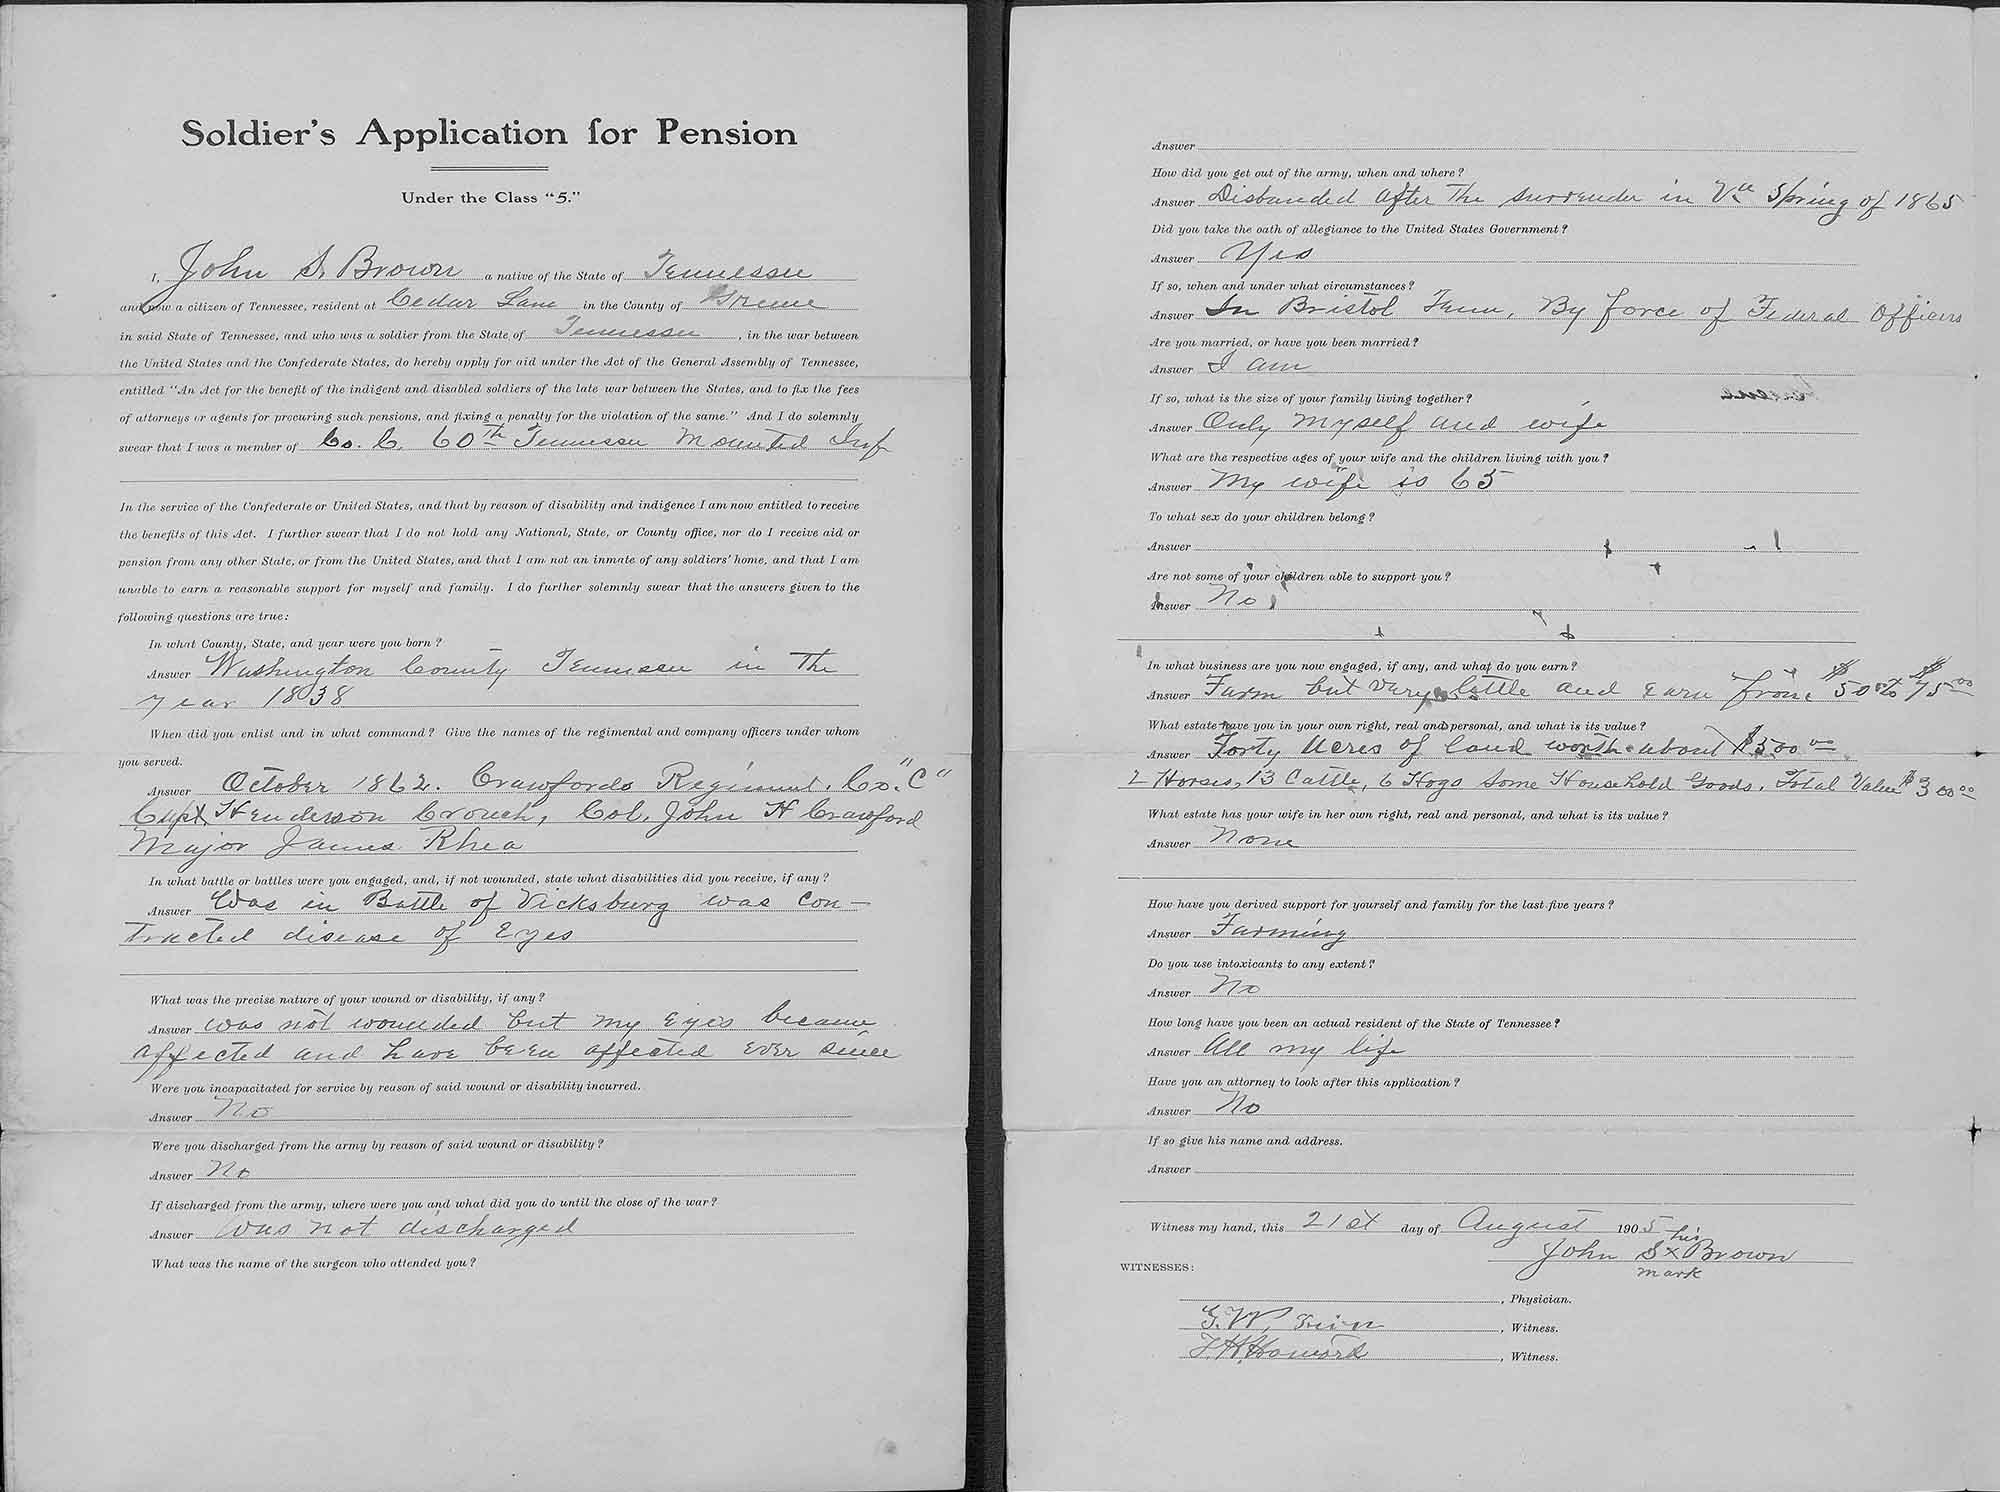 Soldier's Application for Pension
Under the Class "5."
I, John S. Brown a native of the State of Tennessee
and now a citizen of Tennessee, resident at Cedar Lane in the County of Greene
in said State of Tennessee, and who was a soldier from the State of Tennessee, in the war between
the United States and the Confederate States, do hereby apply for aid under the Act of the General Assembly of Tennessee,
entitled "An Act for the benefit of the indigent and disabled soldiers of the late war between the States, and to fix the fees
of attorneys or agents for procuring such pensions, and fixing a penalty for the violation of the same." And I do solemnly
swear that I was a member of Co. C, 60th Tennessee Mounted Inf
In the service of the Confederate or United States, and that by reason of disability and indigence I am now entitled to receive
the benefits of this Act. I further swear that I do not hold any National, State, or County office, nor do I receive aid or
pension from any other State, or from the United States, and that I am not an inmate of any soldiers' home, and that I am
unable to earn a reasonable support for myself and family. I do further solemnly swear that the answers given to the
following questions are true:
In what County, State, and year were you born?
Answer Washington County Tennessee in The
year 1838
When did you enlist and in what command? Give the names of the regimental and company officers under whom
you served.
Answer October 1862. Crawfords Regiment, Co. "C"
Capt. Henderson Crouch, Col. John H Crawford
Major James Rhea
In what battle or battles were you engaged, and, if not wounded, state what disabilities did you receive, if any?
Answer Was in Battle of Vicksburg was con-
tracted disease of Eyes
What was the precise nature of your wound or disability, if any?
Answer was not wounded but my Eyes became
affected and have been affected ever since
Were you incapacitated for service by reason of said wound or disability incurred.
Answer No
Were you discharged from the army by reason of said wound or disability?
Answer No
If discharged from the army, where were you and what did you do until the close of the war?
Answer Was not discharged
What was the name of the surgeon who attended you?
Answer
How did you get out of the army, when and where?
Answer Disbanded after The surrender in Va Spring of 1865
Did you take the oath of allegiance to the United States Government?
Answer Yes
If so, when and under what circumstances?
Answer In Bristol Tenn, By force of Federal Officers
Are you married, or have you been married?
Answer I am
If so, what is the size of your family living together?
Answer Only myself and wife
What are the respective ages of your wife and the children living with you?
Answer My wife is 65
To what sex do your children belong?
Answer
Are not some of your children able to support you?
Answer No
In what business are you now engaged, if any, and what do you earn?
Answer Farm but vary little and Earn from $50 to $75 00
What estate have you in your own right, real and personal, and what is its value?
Answer Forty Acres of land worth about $500 00
2 Horses, 13 Cattle, 6 Hogs Some Household Goods, Total Value $300 00
What estate has your wife in her own right, real and personal, and what is its value?
Answer None
How have you derived support for yourself and family for the last five years?
Answer Farming
Do you use intoxicants to any extent?
Answer No
How long have you been an actual resident of the State of Tennessee?
Answer All my life
Have you an attorney to look after this application?
Answer No
If so give his name and address.
Answer
Witness my hand, this 21st day of August 1905
his
John S x Brown
mark
WITNESSES:
, Physician.
G. W. , Witness.
, Witness.